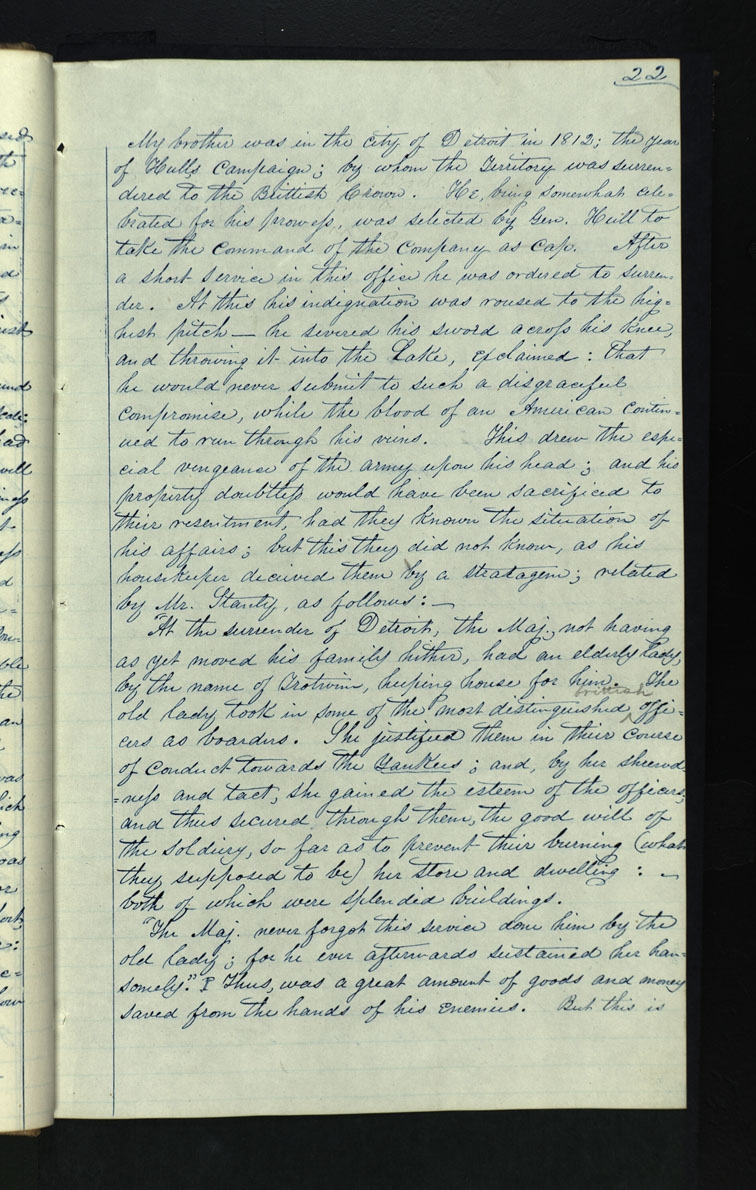 22
My brother was in the city of Detroit in 1812; the year
of Hulls Campaign; by whom the Territory was surren-
dered to the Brittish Crown. He, being somewhat cele-
brated for his prowess, was selected by Gen. Hull to
take the command of the Company as Cap. After
a short service in this office he was ordered to surren-
der. At this his indignation was roused to the hig=
hest pitch — he severed his sword across his knee,
and throwing it into the Lake, exclaimed: That
he would never submit to such a disgraceful
compromise, while the blood of an American contin=
ued to run through his veins. This drew the espe-
cial vengeance of the army upon his head; and his
property doubtless would have been sacrificed to
their resentment, had they known the situation of
his affairs; but this they did not know, as his
housekeeper decieved them by a stratagem; related
by Mr. Stanly, as follows: —
"At the surrender of Detroit, the Maj. not having
as yet moved his family hither, had an elderly Lady,
by the name of Trotwine, keeping house for him. The
old lady took in some of the most distinguished brittish offi=
cers as boarders. She justified them in their course
of conduct towards the Yankees; and, by her shrewd
=ness and tact, she gained the esteem of the officers,
and thus secured through them, the good will of
the soldiery, so far as to prevent their burning (what
they supposed to be) her store and dwelling: —
both of which were splendid buildings.
"The Maj. never forgot this service done him by the
old lady; for he ever afterwards sustained her han=
somely." Thus, was a great amount of goods and money
saved from the hands of his enemies. But this is